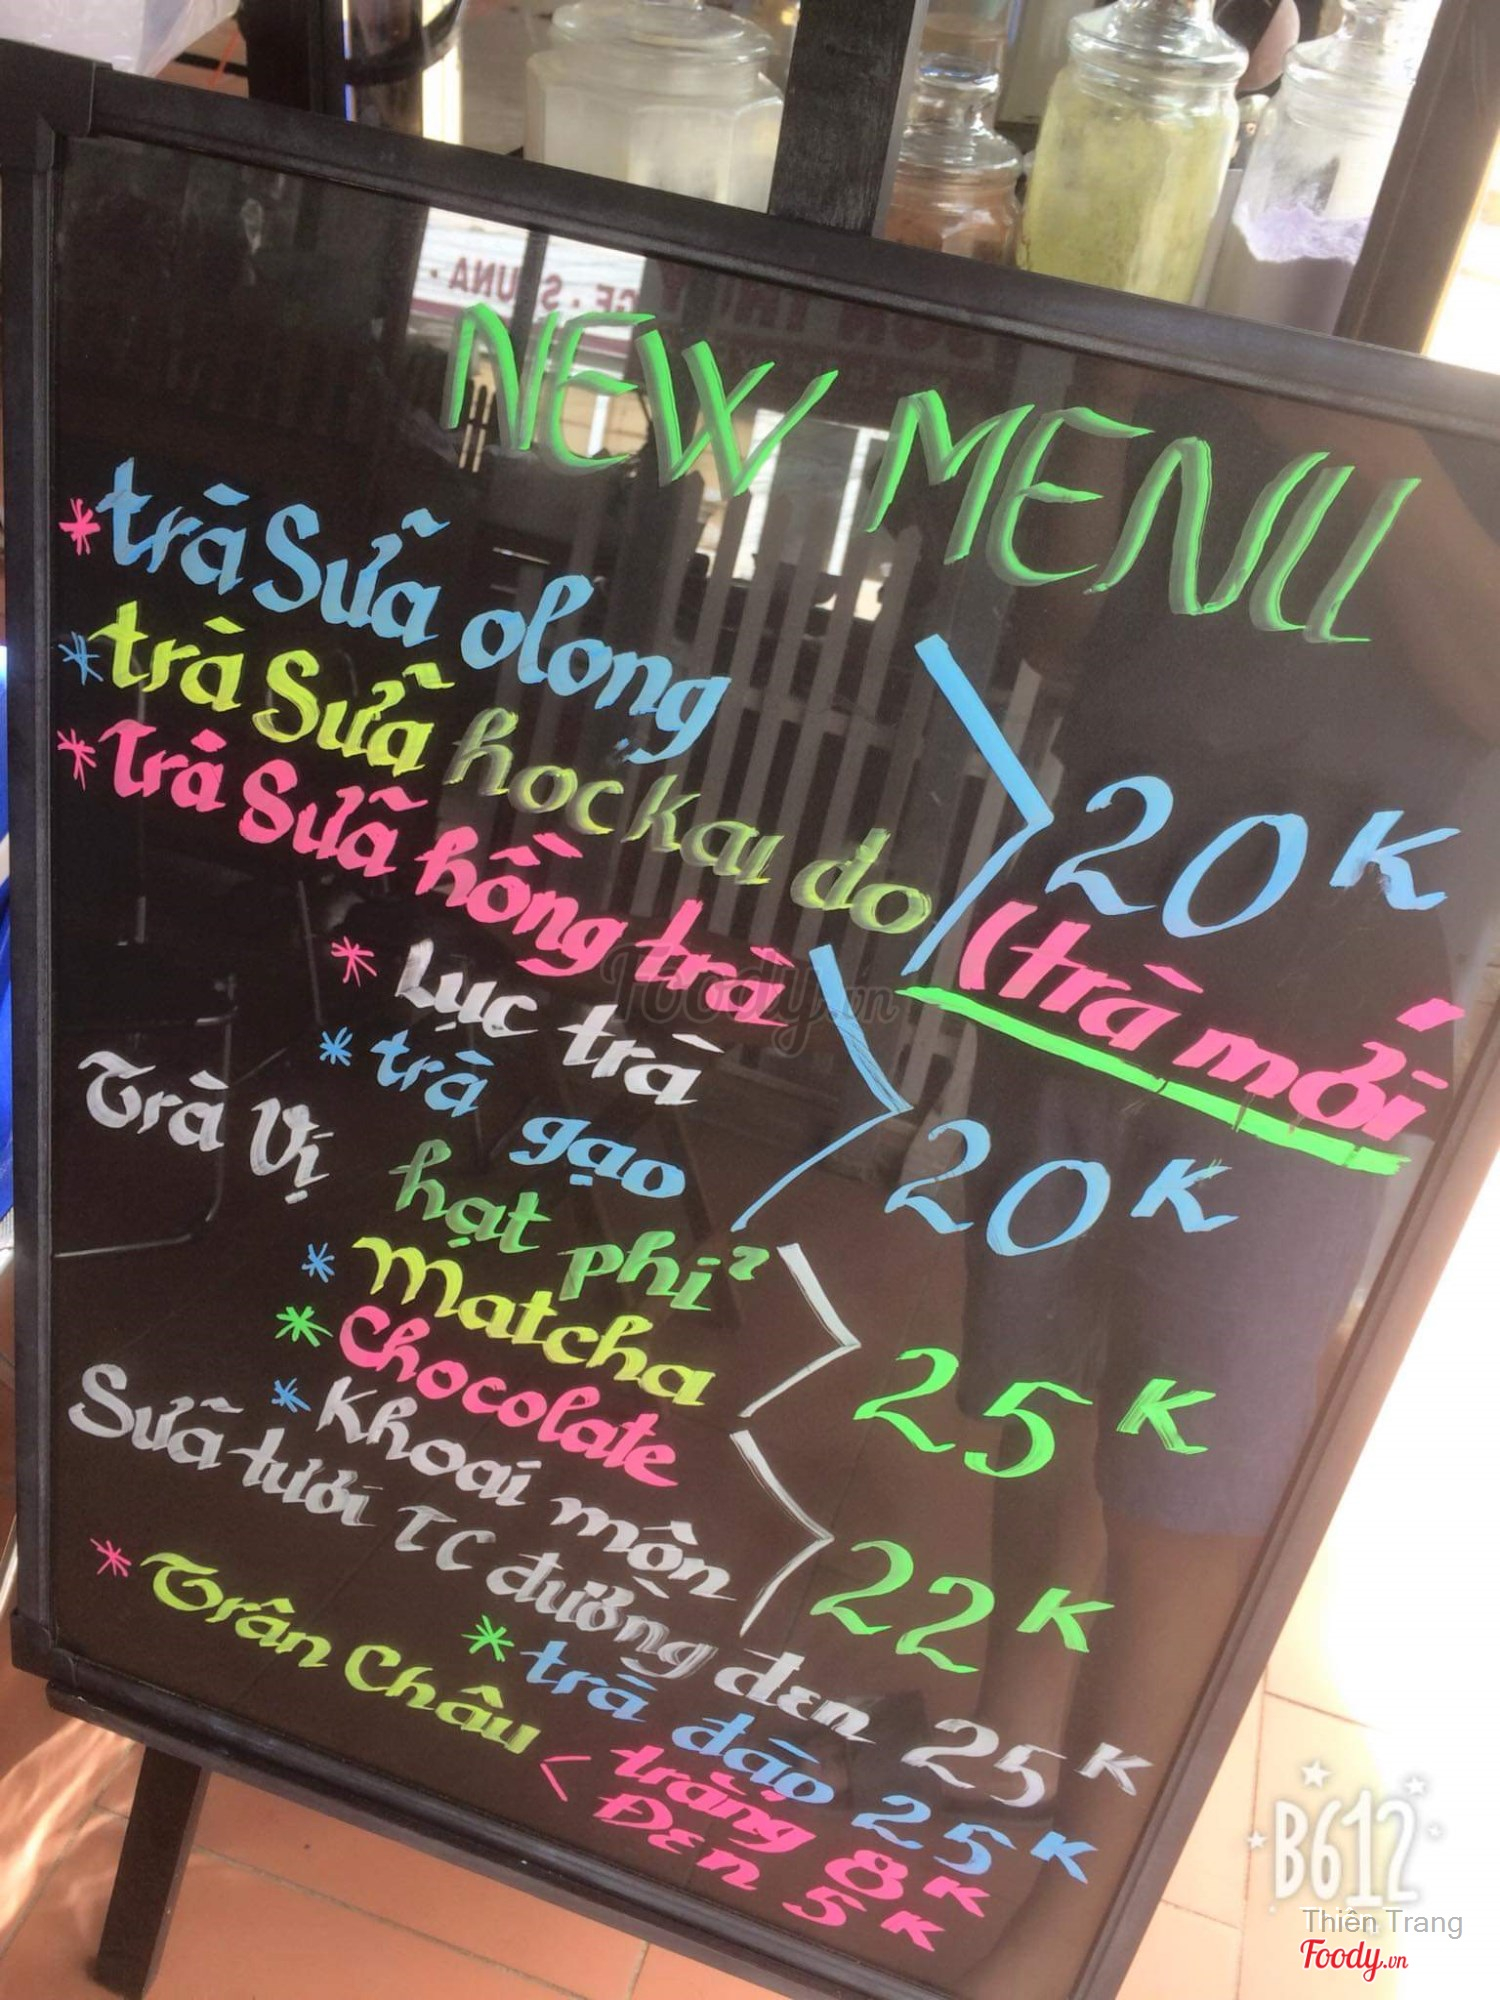 NEW MENU
* trà Sữa olong
* trà Sữa hockai do
20K
* trà Sữa hồng trà
(trà mới
* Lục trà
* trà gạo
20K
Trà Vị
hạt phỉ
* Matcha
25K
* Chocolate
* Khoai môn
22K
Sữa tươi TC đường đen 25K
* trà đào 25K
* Trân Châu < trắng 8K
Đen 5K
Foody.vn
B612
Thiên Trang
Foody.vn